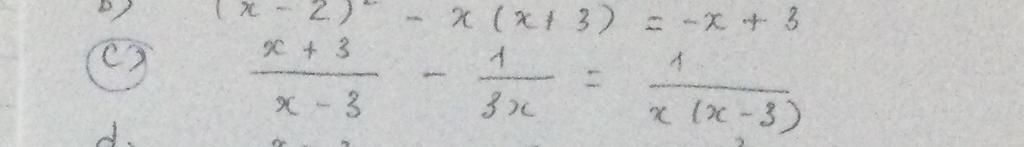 b) (x - 2)² - x (x + 3) = -x + 3
c) \frac{x + 3}{x - 3} - \frac{1}{3x} = \frac{1}{x (x - 3)}
d.